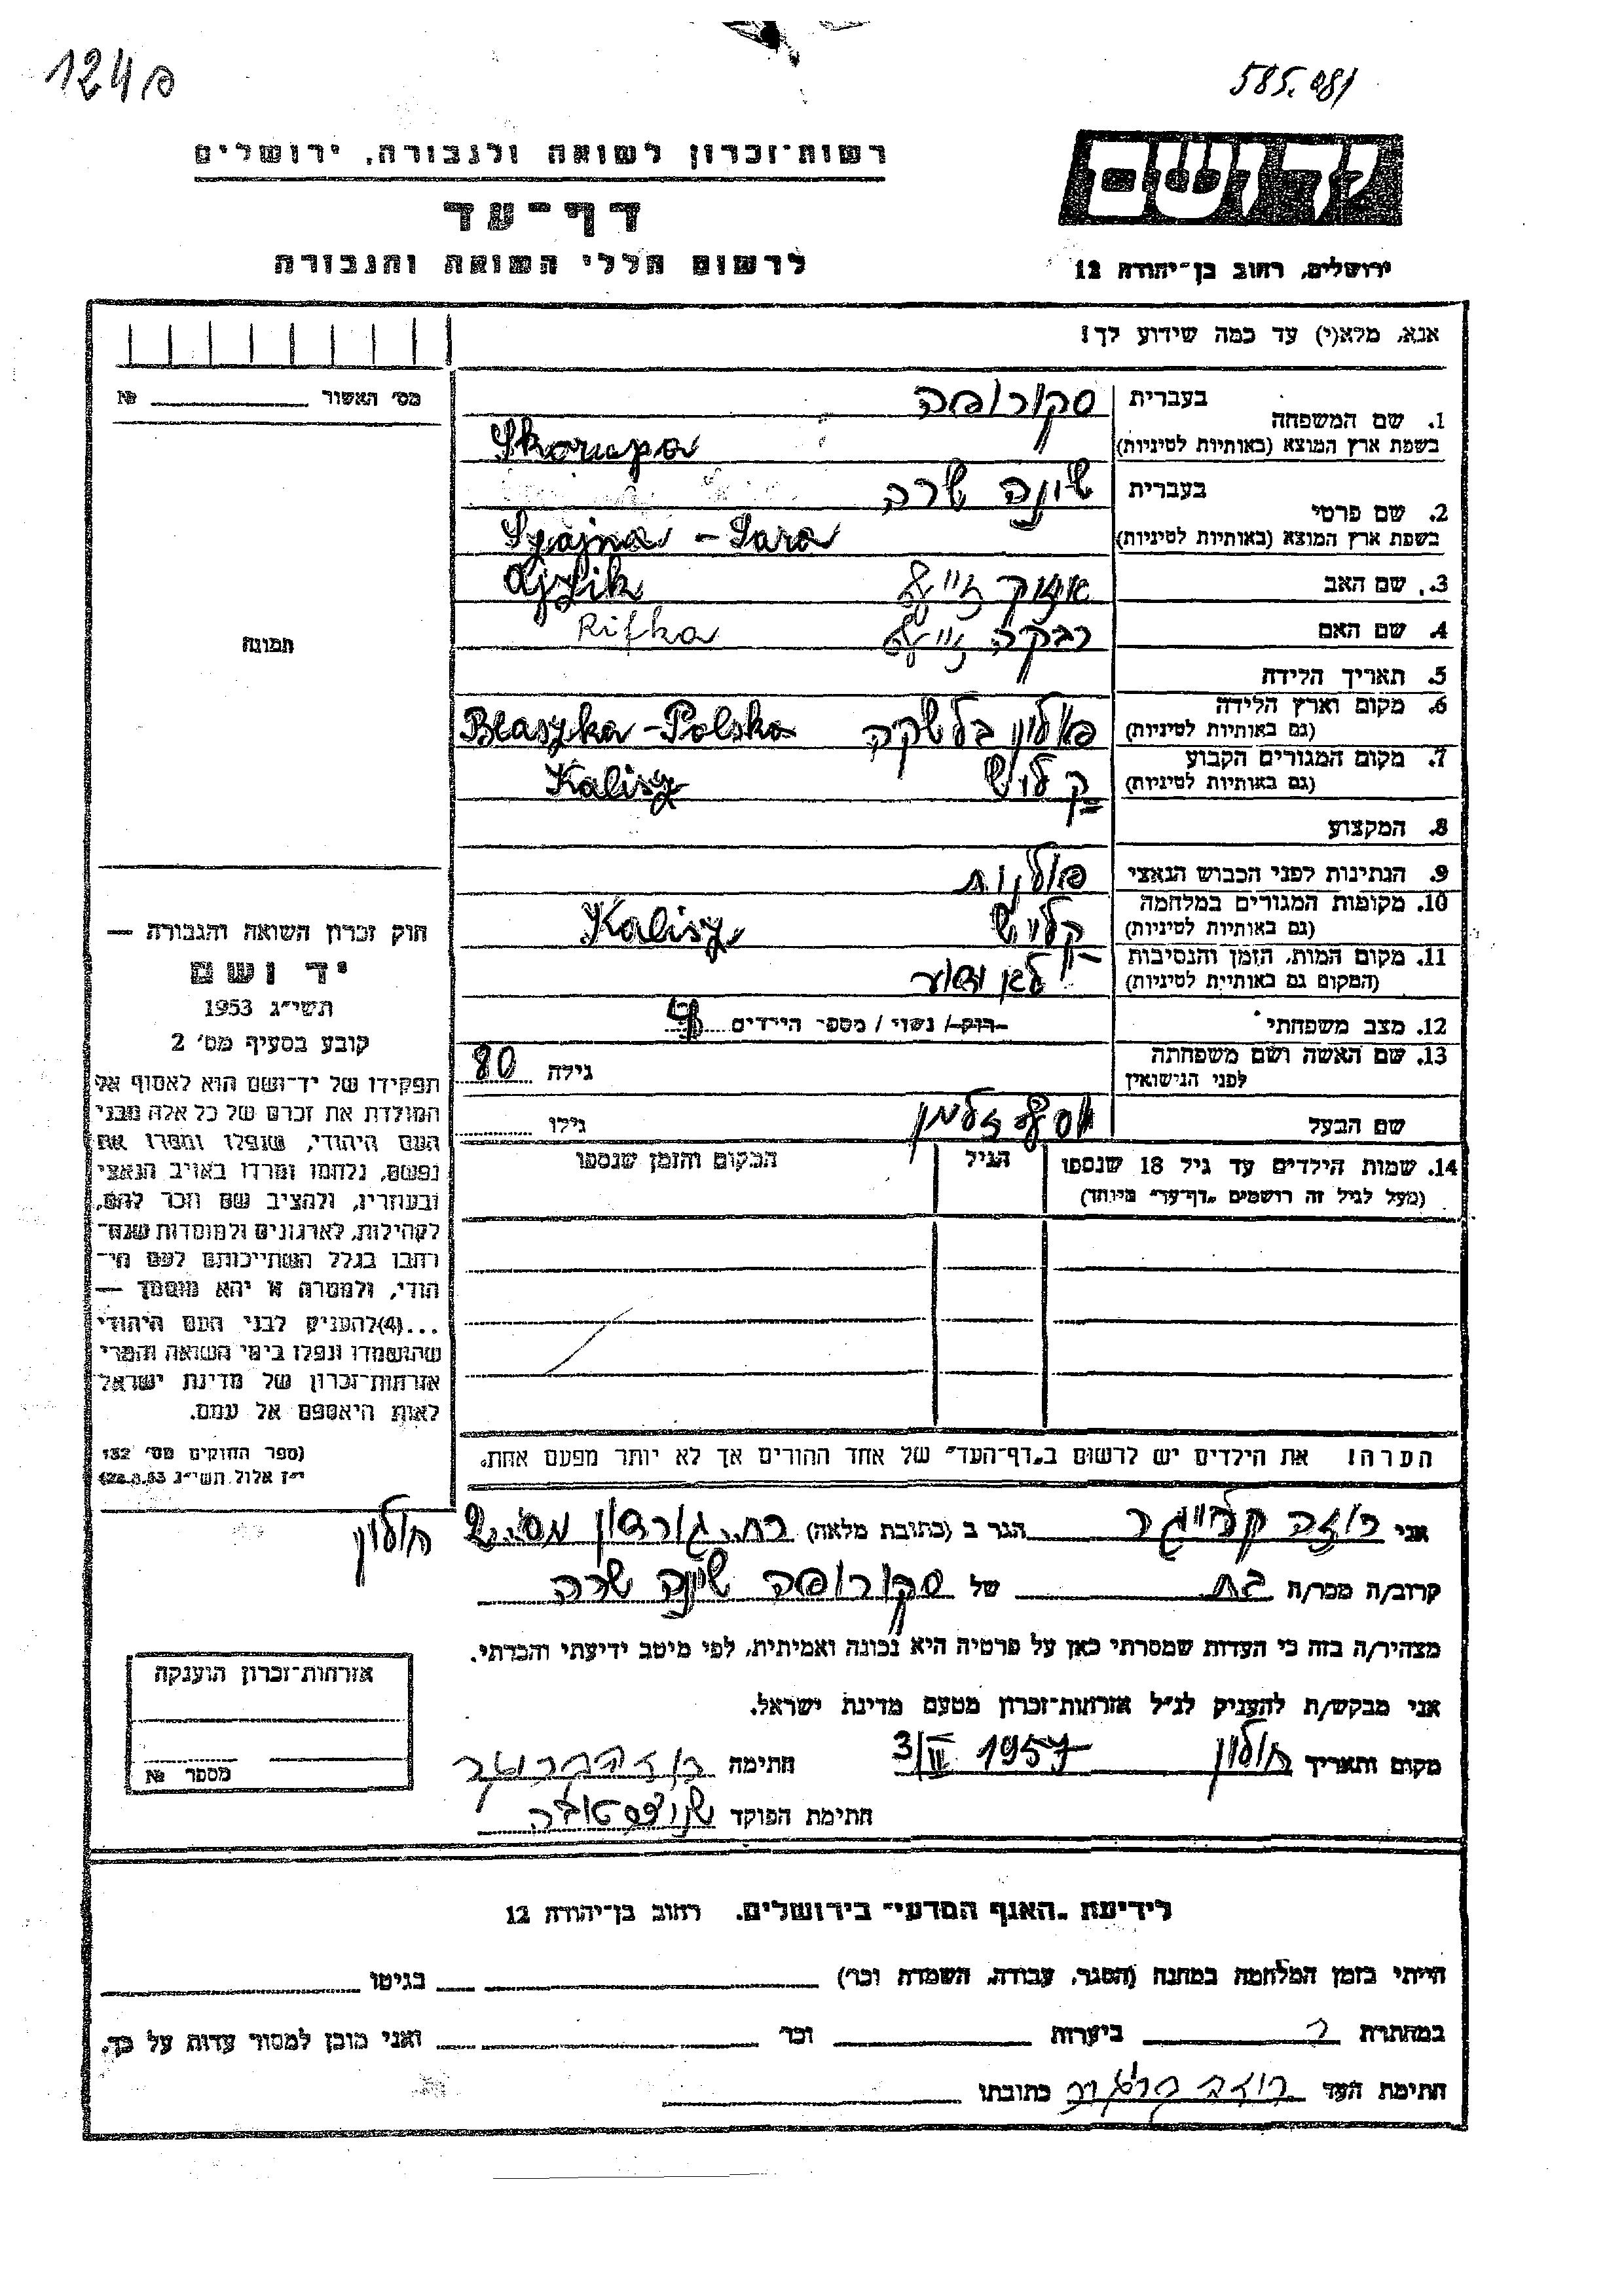 124פ
585.081
רשות־זכרון לשואה ולגבורה, ירושלים
יד ושם
דף־עד
לרשום חללי השואה והגבורה
ירושלים, רחוב בן־יהודה 12
אנא, מלא(י) עד כמה שידוע לך!
מס׳ האשור № 
1. שם המשפחה בעברית סקורופה
בשפת ארץ המוצא (באותיות לטיניות) Skorupa
2. שם פרטי בעברית שינה שרה
בשפת ארץ המוצא (באותיות לטיניות) Szajna - Sara
3. שם האב אייזיק Ajzik
4. שם האם רבקה Rifka
5. תאריך הלידה
6. מקום וארץ הלידה (גם באותיות לטיניות) פאלין בלשקה Blaszka - Polska
7. מקום המגורים הקבוע (גם באותיות לטיניות) קליש Kalisz
8. המקצוע
9. הנתינות לפני הכבוש הנאצי פולנית
10. מקומות המגורים במלחמה (גם באותיות לטיניות) קליש Kalisz
11. מקום המות, הזמן והנסיבות (המקום גם באותיות לטיניות) לא ידוע
12. מצב משפחתי רוק / נשוי / מספר הילדים
13. שם האשה ושם משפחתה לפני הנישואין גילה 80
שם הבעל זלמן גילו
14. שמות הילדים עד גיל 18 שנספו הגיל המקום והזמן שנספו
(מעל לגיל זה רושמים „דף־עד״ מיוחד)
תמונה
חוק זכרון השואה והגבורה —
יד ושם
תשי״ג 1953
קובע בסעיף מס׳ 2
תפקידו של יד־ושם הוא לאסוף אל
המולדת את זכרם של כל אלה מבני
העם היהודי, שנפלו ומסרו את
נפשם, נלחמו ומרדו באויב הנאצי
ובעוזריו, ולהציב שם וזכר להם,
לקהילות, לארגונים ולמוסדות שנח־
רבו בגלל השתייכותם לעם הי־
הודי, ולמטרה זו יהא מוסמך —
...(4)להעניק לבני העם היהודי
שהושמדו ונפלו בימי השואה והמרי
אזרחות־זכרון של מדינת ישראל
לאות היאספם אל עמם.
(ספר החוקים מס׳ 132
י״ז אלול תשי״ג 28.8.53)
הערה! את הילדים יש לרשום ב„דף־העד״ של אחד ההורים אך לא יותר מפעם אחת.
אני רוזה קרייגר הגר ב (כתובת מלאה) רח. גורדון מס. 2 חולון
קרוב/ה מכר/ה בת של סקורופה שינה שרה
מצהיר/ה בזה כי העדות שמסרתי כאן על פרטיה היא נכונה ואמיתית, לפי מיטב ידיעתי והכרתי.
אני מבקש/ת להעניק לנ״ל אזרחות־זכרון מטעם מדינת ישראל.
מקום ותאריך חולון 1957 חתימה
חתימת הפוקד
אזרחות־זכרון הוענקה
מספר №
לידיעת „האגף המדעי״ בירושלים. רחוב בן־יהודה 12
הייתי בזמן המלחמה במחנה (הסגר, עבודה, השמדה וכו׳) בגיטו
במחתרת ביערות וכו׳ ואני מוכן למסור עדות על כך.
חתימת העד כתובתו